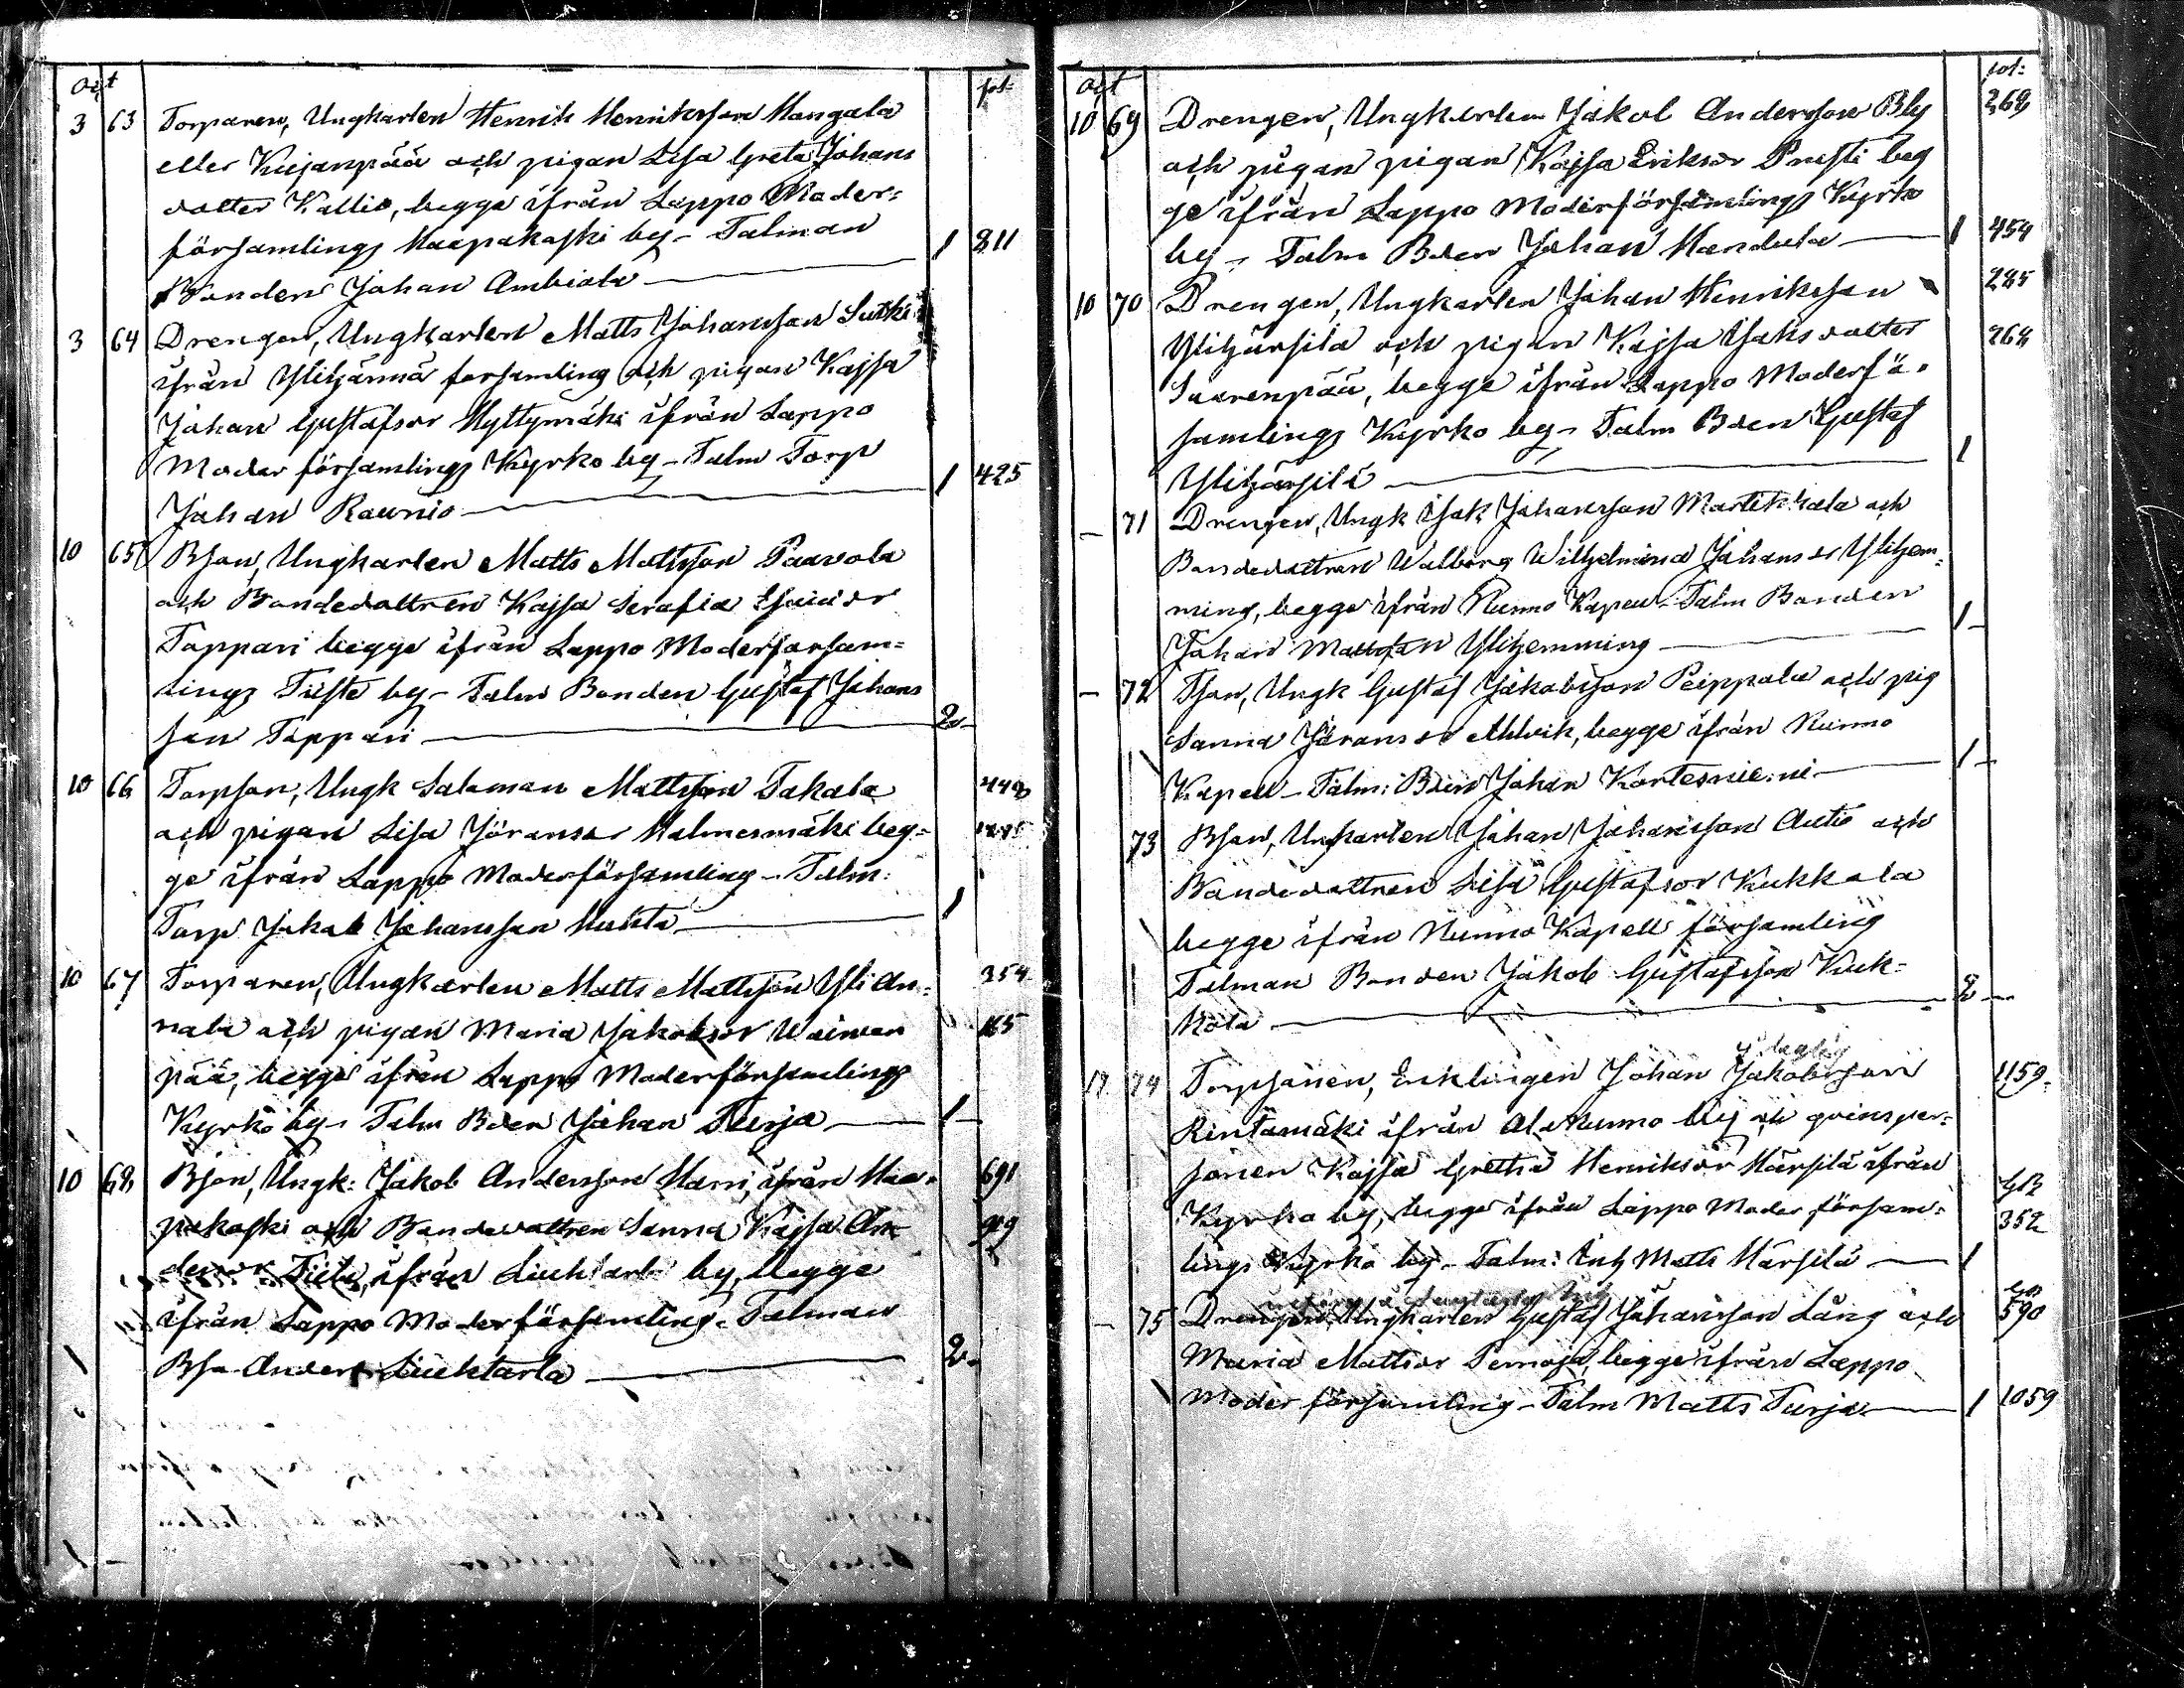 Oct
fol:
3 63 Torparen, Ungkarlen Henrik Henriksson Mangala
eller Kujanpää och pigan Lisa Greta Johans
dotter Kallio, begge ifrån Lappo Moder=
församlings Haapakoski by - Talman
Bonden Johan Ambiala 1 811
3 64 Drengen, Ungkarlen Matts Johansson Lutki
ifrån Ylihärmä forsamling och pigan Kajsa
Johan Gustafsdr Myllymäki ifrån Lappo
Moder församlings Kyrko by - Talm Torp
Johan Raunio 1 425
10 65 Bson, Ungkarlen Matts Mattsson Paavola
och Bondedottren Kajsa Serafia Esaiadr
Tappari begge ifrån Lappo Moderforsam=
lings Tiiste by - Talm Bonden Gustaf Johans
son Tappari 2
10 66 Torpson, Ungk Saloman Mattsson Takala 448
och pigan Lisa Jöransdr Malmesmäki beg=
ge ifrån Lappo Moderförsamling - Talm:
Torp Jakob Johansson Huhta 1
10 67 Torparen, Ungkarlen Matts Mattsson Yli An= 354
nala och pigan Maria Jakobsdr Wainion 165
pää, begge ifrån Lappo Moderförsamlings
Kyrko by - Talm Bden Johan Turja 1
10 68 Bson, Ungk: Jakob Andersson Harri, ifrån Haa= 691
pakoski och Bondedottren Sanna Kajsa An
dersdr ifrån Liuhtari by, begge
ifrån Lappo Moderförsamling - Talman
Bso Anders Liuhtarla 2
Oct
fol:
10 69 Drengen, Ungkarlen Jakob Andersson Bly 368
och pigan pigan Kajsa Eriksdr Presti beg
ge ifrån Lappo Moderförsamlings Kyrko
by - Talm Bden Johan Handula 1 454
10 70 Drengen, Ungkarlen Johan Henriksson 285
Ylihärsilä och pigan Kajsa Isaksdotter 264
Saarenpää, begge ifrån Lappo Moderfö=
samlings Kyrko by - Talm Bden Gustaf
Ylihärsilä 1
- 71 Drengen, Ungk Isak Johansson Martikkala och
Bondedottren Walborg Wilhelmina Johansdr Ylihem=
ming, begge ifrån Nurmo Kapell - Talm Bonden
Johan Mattsson Ylihemming 1
- 72 Tson, Ungk Gustaf Jakobsson Peippala och pig
Sanna Jöransdr Ahlvik, begge ifrån Nurmo
Kapell - Talm: Bden Johan Kortesnie:ni 1
73 Bson, Ungkarlen Johan Johansson Autio och
Bondedottren Lisa Gustafsdr Kukkola
begge ifrån Nurmo Kapell församling
Talman Bonden Jakob Gustafsson Kuk=
kola 2
17 74 Torpsonen, Enklingen Johan Jakobsson 1159
Rintamäki ifrån Ala Nurmo by och qvinsper=
sonen Kajsa Gretha Henriksdr Härsilä ifrån
Kyrko by, begge ifrån Lappo Moder församl=
lings Kyrko by - Talm: Inh Matts Härsilä 1 352
- 75 Drengen, Ungkarlen Gustaf Johansson Lång och 590
Maria Mattsdr Pernaja, begge ifrån Lappo
Moder församling - Talm Matts Turja 1 1059